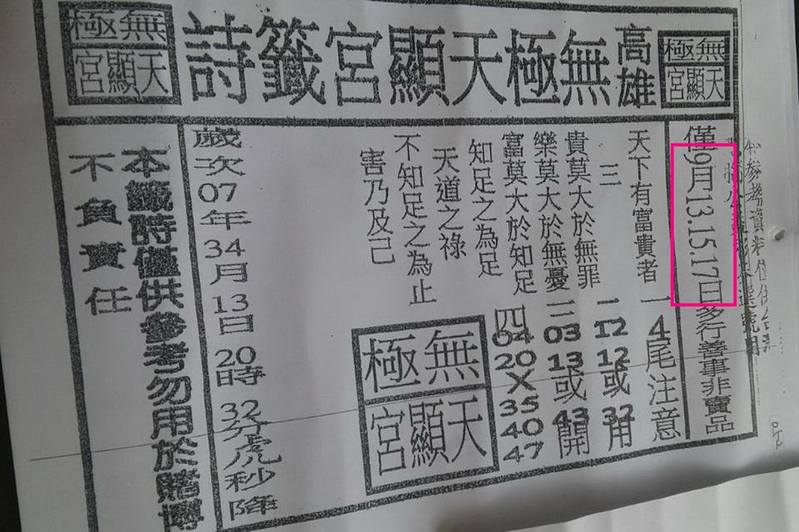 無極
天顯宮
高雄無極天顯宮籤詩
無極
天顯宮
僅9月13.15.17日多行善事非賣品
天下有富貴者
三
貴莫大於無罪
樂莫大於無憂
富莫大於知足
知足之為足
天道之祿
不知足之為止
害乃及己
一4尾注意
二12 12或32用
三03 13或43開
四04 20X35 40 47
無極
天顯宮
歲次07年34月13日20時32分虎秒降
本籤時僅供參考勿用於賭博
不負責任